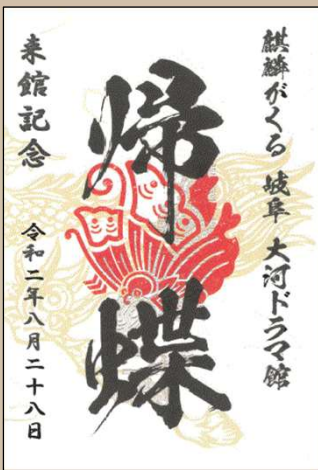 麒麟がくる 岐阜 大河ドラマ館
帰蝶
来館記念
令和二年八月二十八日